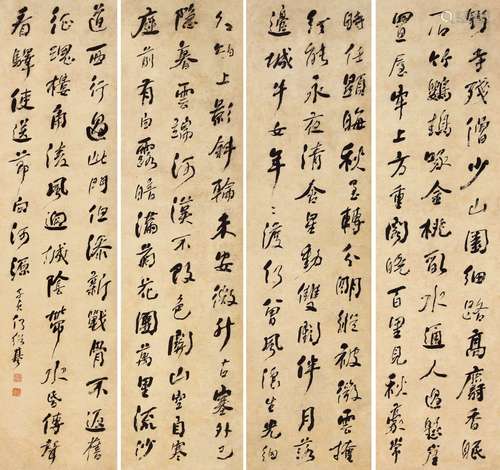 野寺殘僧少山園細路高麝香眠
石竹鸚鵡啄金桃亂水通人過懸崖
置屋牢上方重閣晚百里見秋毫常
時任顯晦秋至轉分明縱被微雲掩
終能永夜清含星動雙闕伴月落
邊城牛女年〻渡何曾風浪生光細
弦初上影斜輪未安微升古塞外已
隱暮雲端河漢不改色關山空自寒
庭前有白露暗滿菊花團萬里流沙
道西行過此門但添新戰骨不返舊
征魂樓角淩風迥城陰帶水昏傳聲
看驛使送節向河源 子貞何紹基